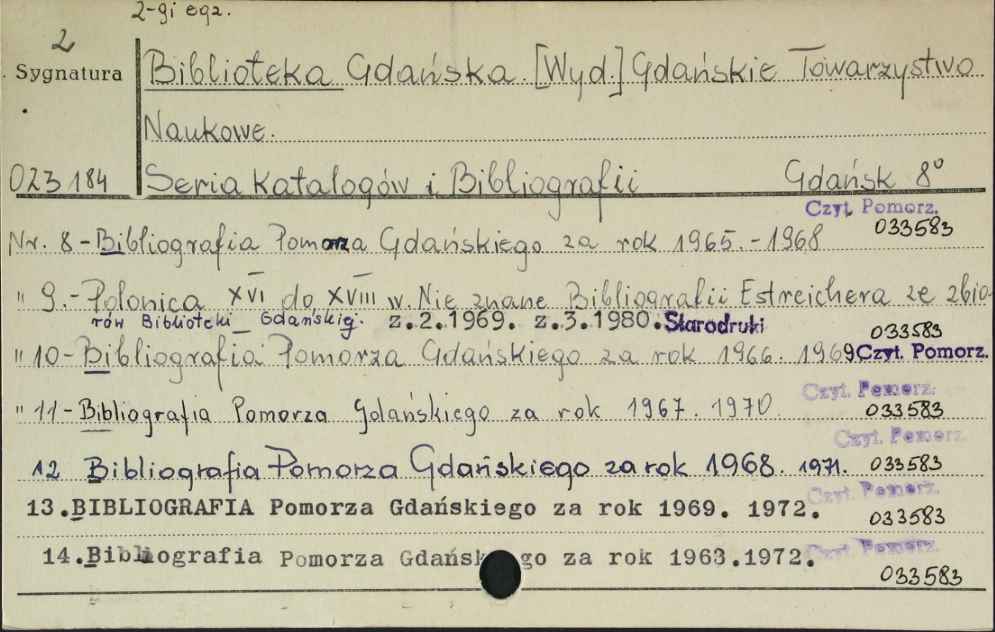 2-gi egz.
2
Sygnatura
Biblioteka Gdańska. [Wyd.] Gdańskie Towarzystwo
Naukowe.
023184 Seria Katalogów i Bibliografii Gdańsk 8°
Czyt. Pomorz.
Nr. 8 - Bibliografia Pomorza Gdańskiego za rok 1965. - 1968 033583
" 9. - Polonica XVI do XVIII w. Nie znane Bibliografii Estreichera ze zbio-
rów Biblioteki Gdańskiej. z.2.1969. z.3.1980. Starodruki
033583
" 10 - Bibliografia Pomorza Gdańskiego za rok 1966. 1969 Czyt. Pomorz.
Czyt. Pomorz.
" 11 - Bibliografia Pomorza Gdańskiego za rok 1967. 1970 033583
Czyt. Pomorz.
12 Bibliografia Pomorza Gdańskiego za rok 1968. 1971. 033583
Czyt. Pomorz.
13. BIBLIOGRAFIA Pomorza Gdańskiego za rok 1969. 1972. 033583
14. Bibliografia Pomorza Gdańsk go za rok 1963.1972. Czyt. Pomorz.
033583